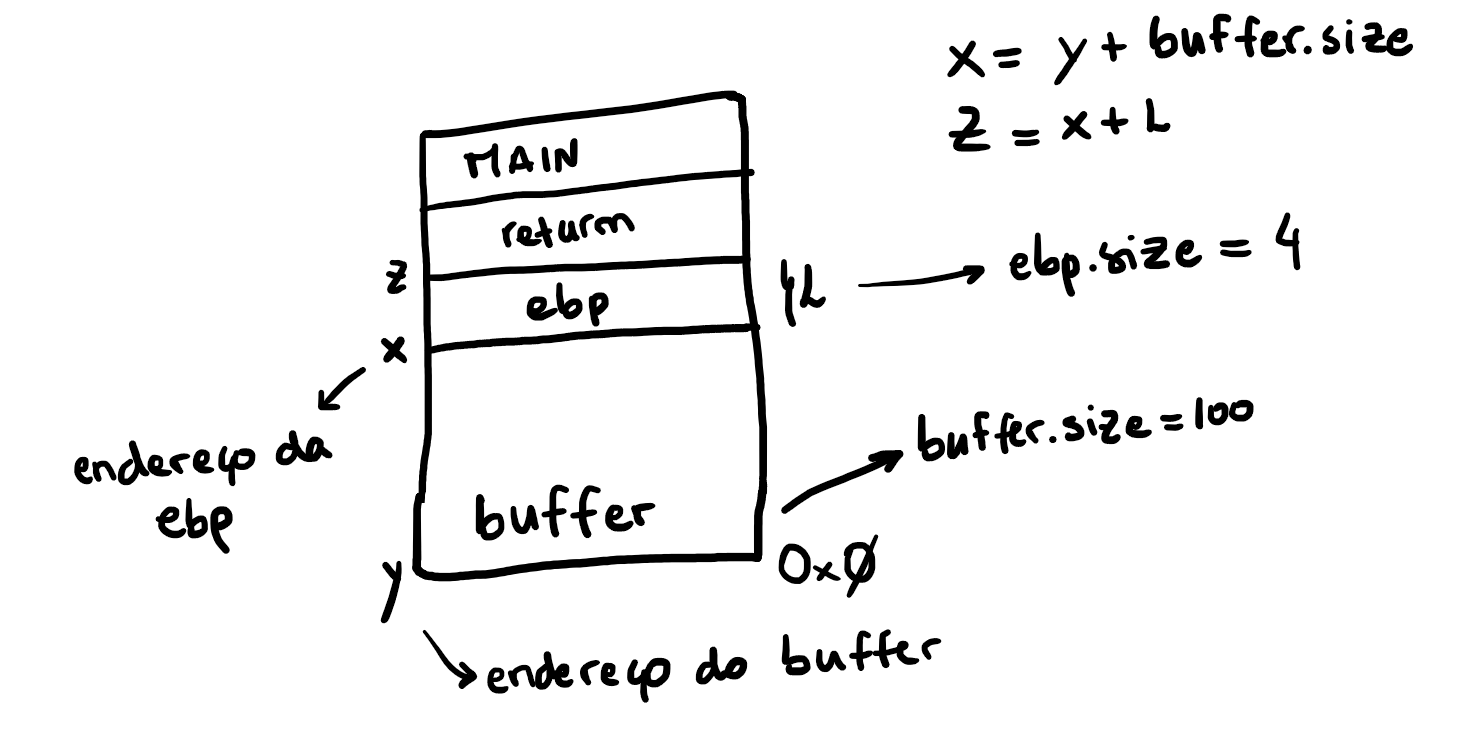 x = y + buffer.size
z = x + L
MAIN
return
z
ebp
4L
ebp.size = 4
x
endereço da
ebp
buffer.size = 100
buffer
y
0x0
endereço do buffer